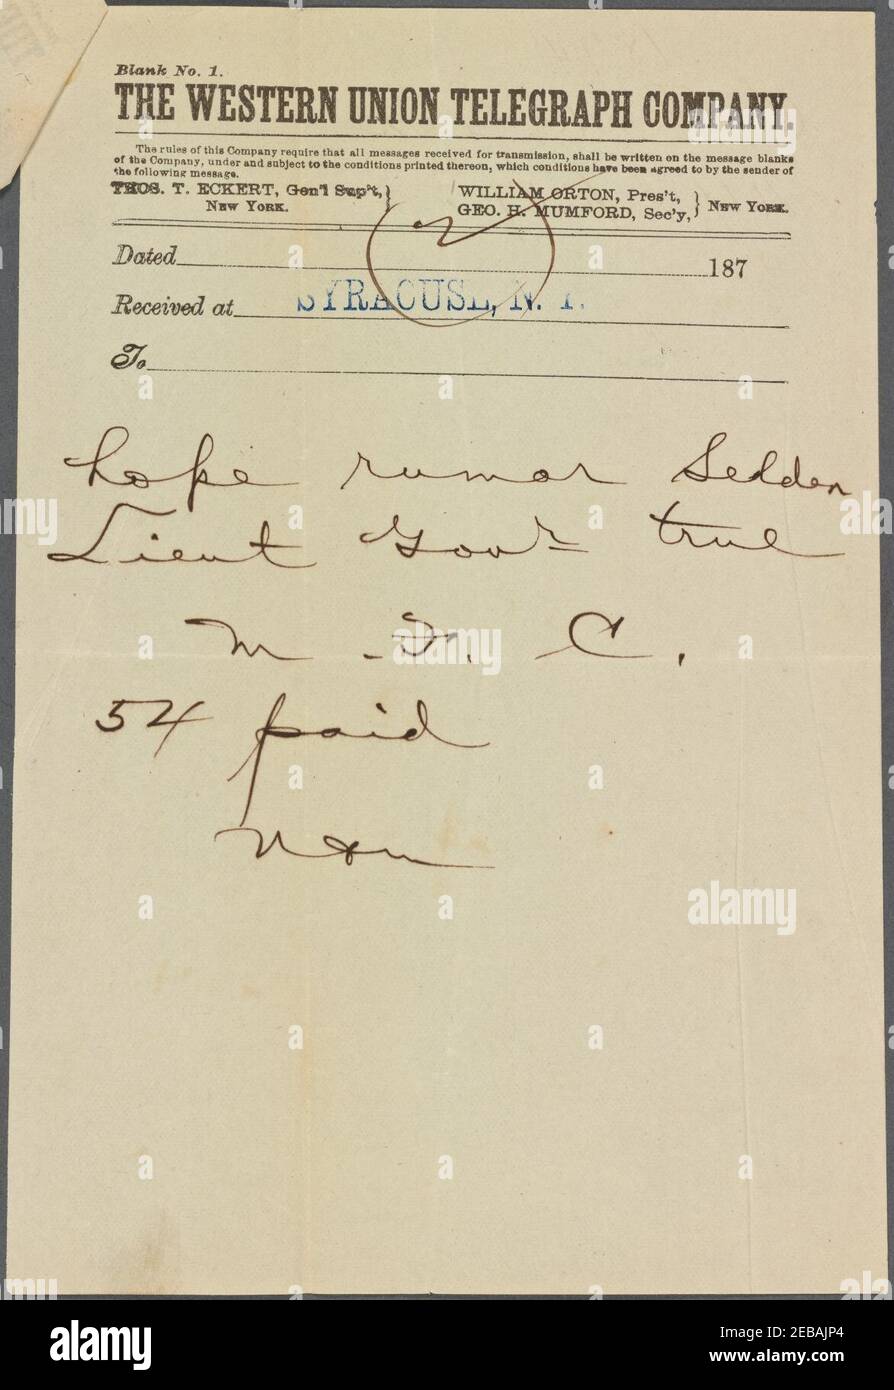 Blank No. 1.
THE WESTERN UNION TELEGRAPH COMPANY.
The rules of this Company require that all messages received for transmission, shall be written on the message blanks
of the Company, under and subject to the conditions printed thereon, which conditions have been agreed to by the sender of
the following message.
THOS. T. ECKERT, Gen'l Sup't, } WILLIAM ORTON, Pres't, }
NEW YORK. GEO. H. MUMFORD, Sec'y, } NEW YORK.
2
Dated 187
Received at SYRACUSE, N. Y.
To
hope rumor Selden
Lieut Gov'r true
M. F. C.
54 paid
alamy
alamy
Image ID: 2EBAJP4
www.alamy.com